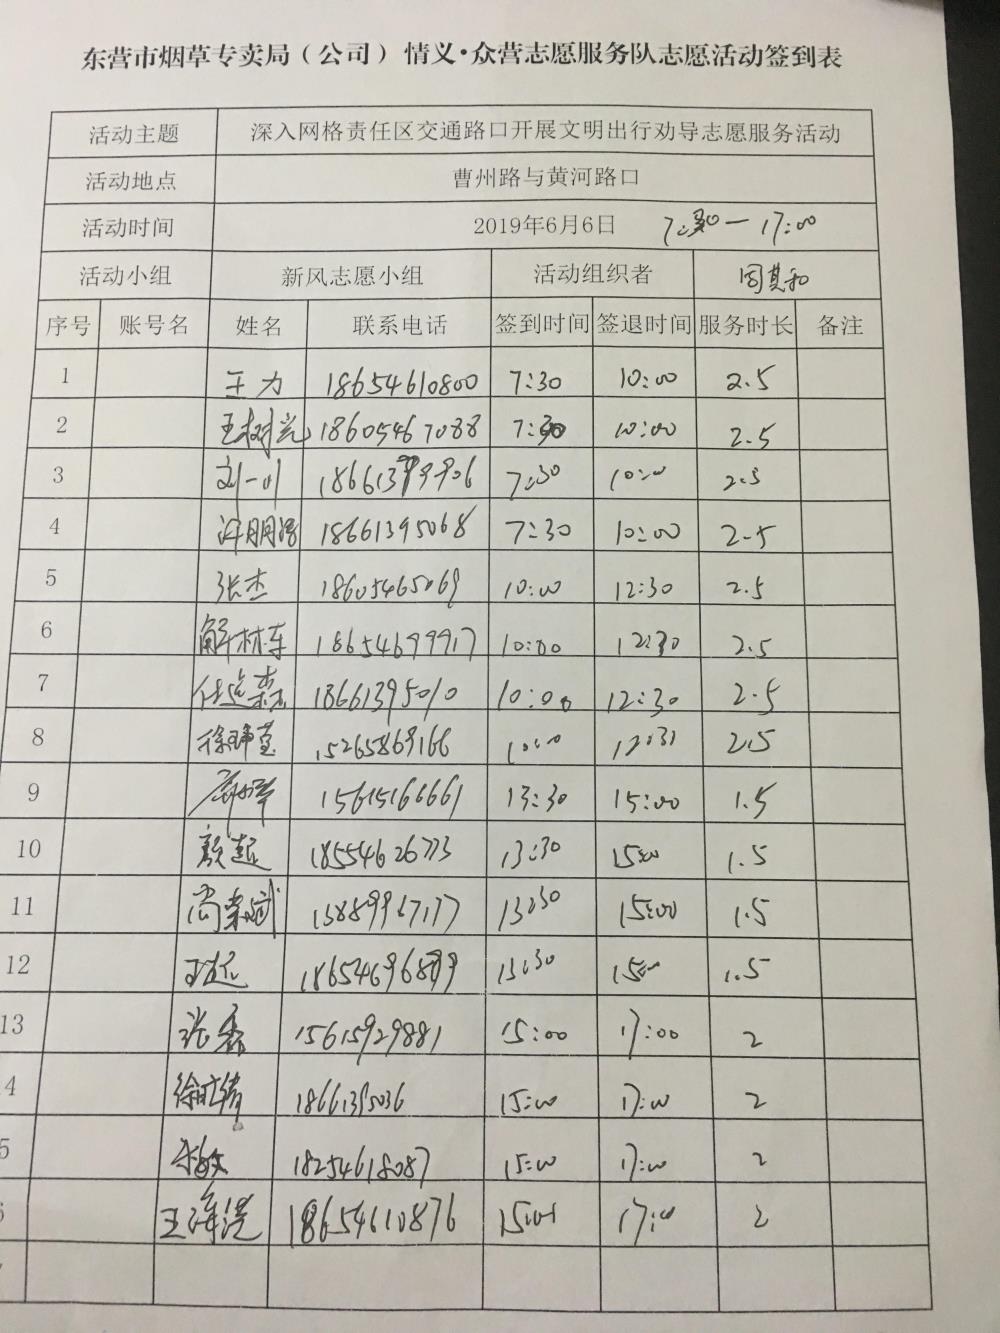 东营市烟草专卖局（公司）情义·众营志愿服务队志愿活动签到表
活动主题 深入网格责任区交通路口开展文明出行劝导志愿服务活动
活动地点 曹州路与黄河路口
活动时间 2019年6月6日 7:30—17:00
活动小组 新风志愿小组 活动组织者 周其和
序号 账号名 姓名 联系电话 签到时间 签退时间 服务时长 备注
1 王力 18654610800 7:30 10:00 2.5
2 王树光 18605467088 7:30 10:00 2.5
3 刘一川 7:30 10:00 2.5
4 许朋 18661395068 7:30 10:00 2.5
5 张杰 18605465069 10:00 12:30 2.5
6 解林东 18654699917 10:00 12:30 2.5
7 18661395010 10:00 12:30 2.5
8 徐 15265869166 10:00 12:30 2.5
9 15615166661 13:30 15:00 1.5
10 18554626773 13:30 15:00 1.5
11 尚荣斌 13889967177 13:30 15:00 1.5
12 13:30 15:00 1.5
13 张鑫 15615929881 15:00 17:00 2
4 徐 1866395036 15:00 17:00 2
5 18254618087 15:00 17:00 2
王 18654610876 15:00 17:00 2